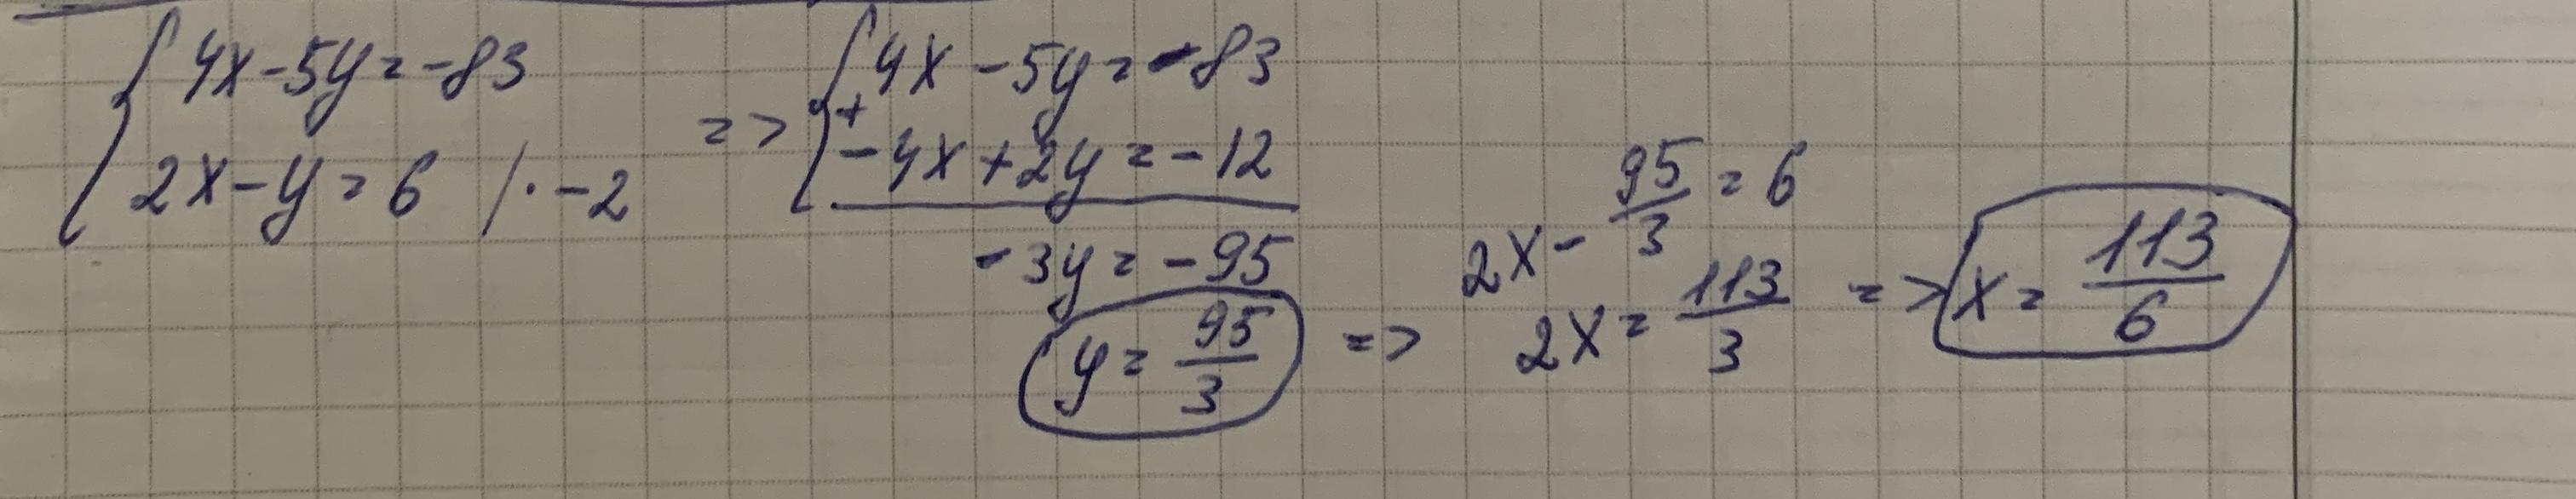 4x-5y=-83
2x-y=6 /·-2
=>
4x-5y=-83
+
-4x+2y=-12
-3y=-95
y=95/3
=>
2x-95/3=6
2x=113/3
=> x=113/6